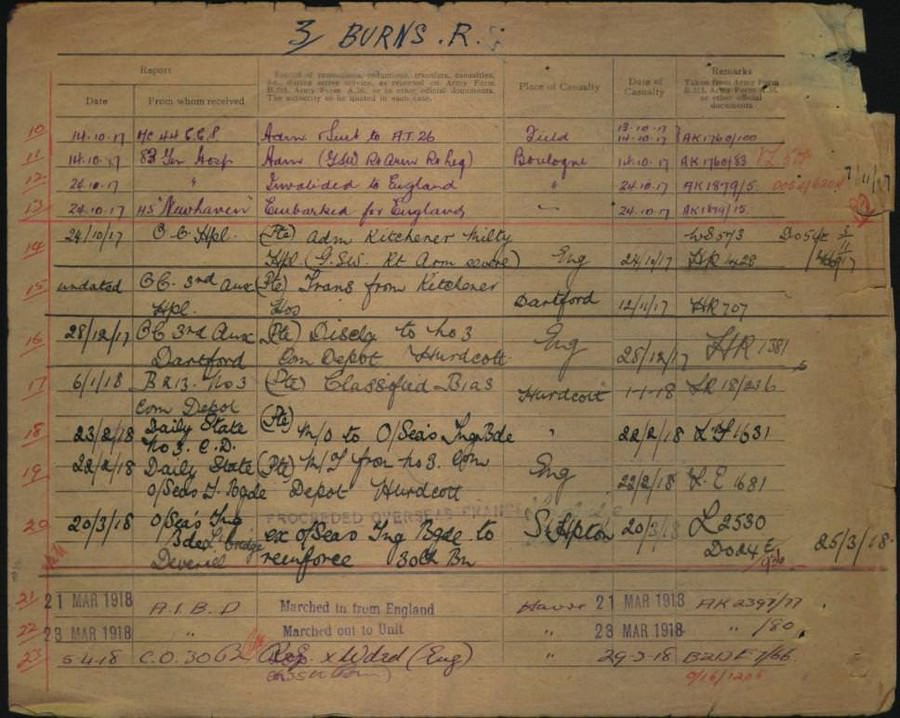 3/ BURNS. R.
Report
Record of promotions, reductions, transfers, casualties,
etc., during active service, as reported on Army Form
B.213, Army Form A.36, or in other official documents.
The authority to be quoted in each case.
Place of Casualty
Date of Casualty
Remarks
Taken from Army Form
B.213, Army Form A.36,
or other official
documents
Date From whom received
10 14.10.17 44 C.C.S Adm & Sent to A.T. 26 Field 13.10.17 14.10.17 AK1760/100
11 14.10.17 83 Gen Hosp Adm (GSW Rt Arm Rt Leg) Boulogne 14.10.17 AK1760/83
12 24.10.17 " Invalided to England " 24.10.17 AK1879/5
13 24.10.17 HS "Newhaven" Embarked for England 24.10.17 AK1879/15
14 24/10/17 O.C. Hpl. (Pte) Adm Kitchener Milty WS573
Hpl (G.S.W. Rt Arm severe) Eng 24/10/17 HR 1428
15 undated OC. 3rd Aux (Pte) Trans from Kitchener
Hpl. Hos Dartford 12/11/17 HR 707
16 28/12/17 OC 3rd Aux (Pte) Disch to No 3 Eng
Dartford Com Depot Hurdcott 28/12/17 HR 1381
17 6/1/18 B213. No 3 (Pte) Classified B1a3 Hurdcott 1-1-18 18/236
Com Depot
18 23/2/18 Daily State (Pte) M/O to O/Seas Tng Bde " 22/2/18 1631
No 3. C.D.
19 22/2/18 Daily State (Pte) M/I from No 3. Com Eng
O/Seas T. Bgde Depot Hurdcott 22/2/18 1681
PROCEEDED OVERSEAS FRANCE
20 20/3/18 O/Seas Tng ex O/Seas Tng Bgde to S'Hpton 20/3/18 L2530
Bde L. bridge Deverill reinforce 30th Bn 25/3/18
21 21 MAR 1918 A.I.B.D Marched in from England Havre 21 MAR 1918 AK2397/77
22 23 MAR 1918 " Marched out to Unit " 23 MAR 1918 " /80
23 5-4-18 C.O. 30 Bn x Wded (Eng) " 29-3-18